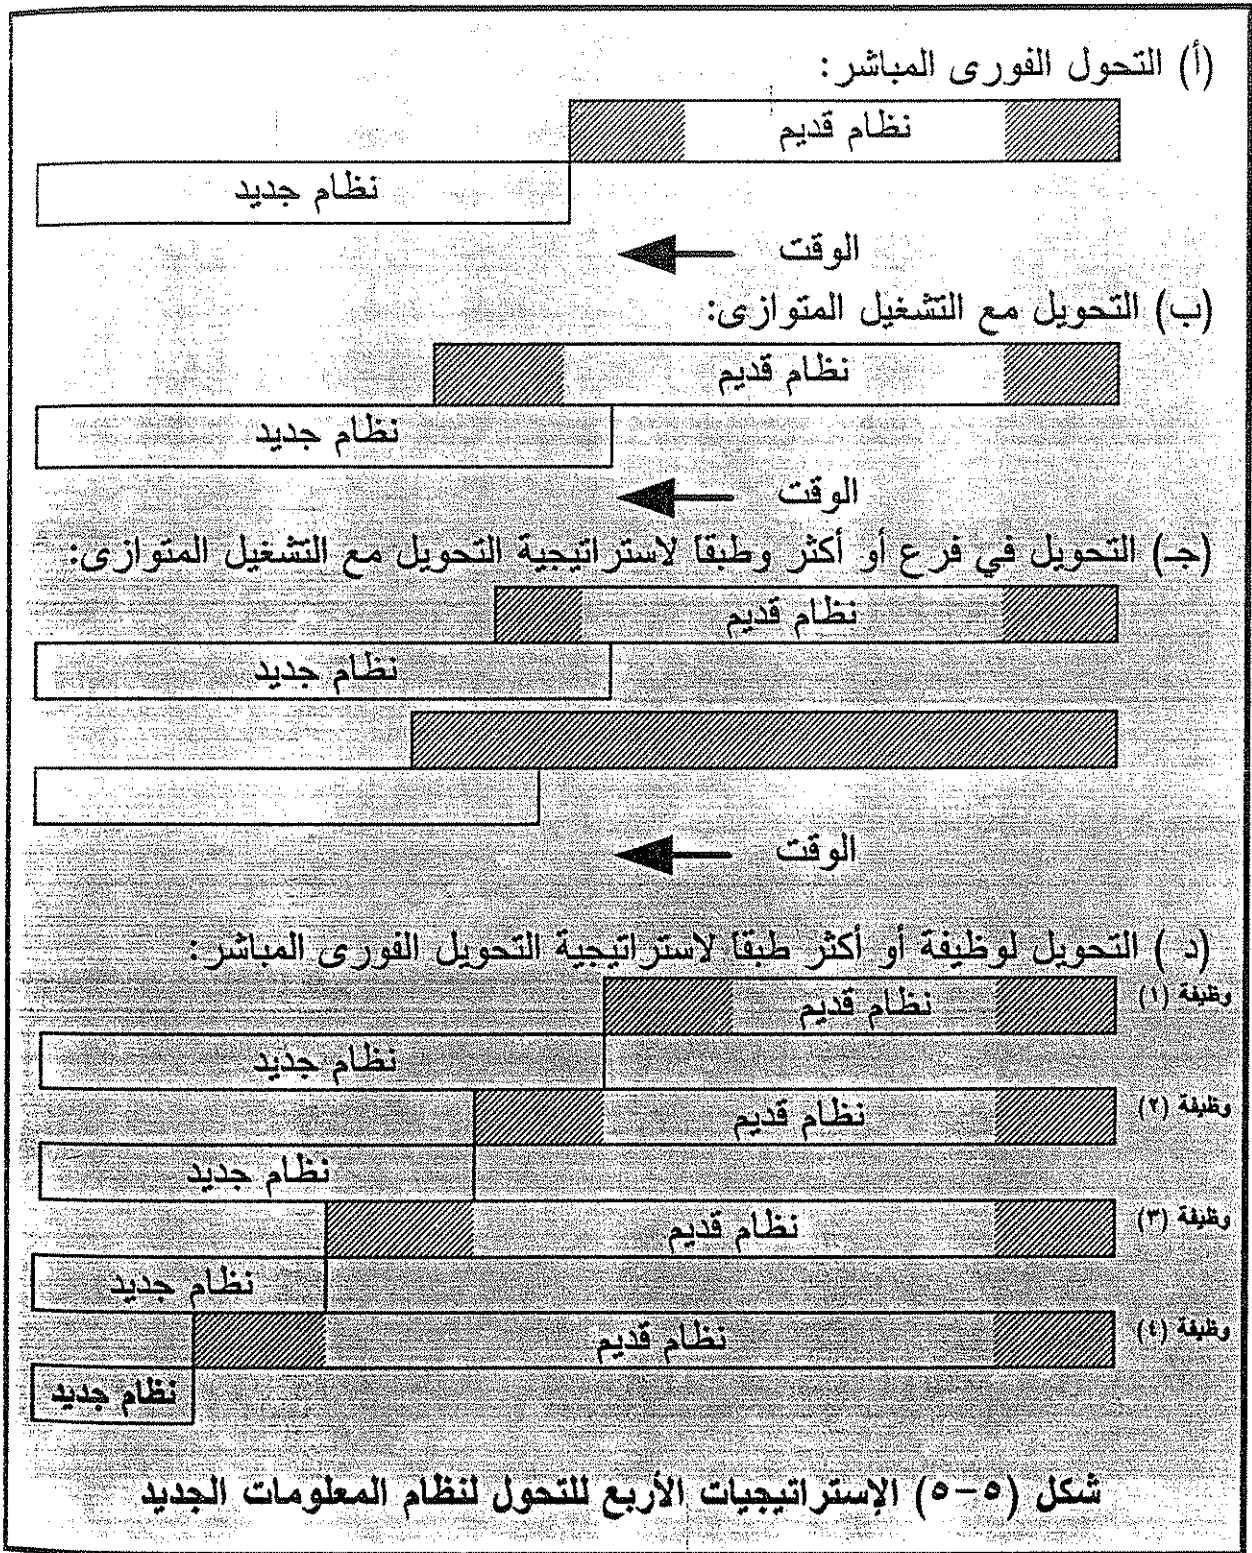 (أ) التحول الفورى المباشر:
نظام قديم
نظام جديد
الوقت
(ب) التحويل مع التشغيل المتوازى:
نظام قديم
نظام جديد
الوقت
(جـ) التحويل في فرع أو أكثر وطبقا لاستراتيجية التحويل مع التشغيل المتوازى:
نظام قديم
نظام جديد
الوقت
(د ) التحويل لوظيفة أو أكثر طبقا لاستراتيجية التحويل الفورى المباشر:
وظيفة (١) نظام قديم
نظام جديد
وظيفة (٢) نظام قديم
نظام جديد
وظيفة (٣) نظام قديم
نظام جديد
وظيفة (٤) نظام قديم
نظام جديد
شكل (٥-٥) الإستراتيجيات الأربع للتحول لنظام المعلومات الجديد